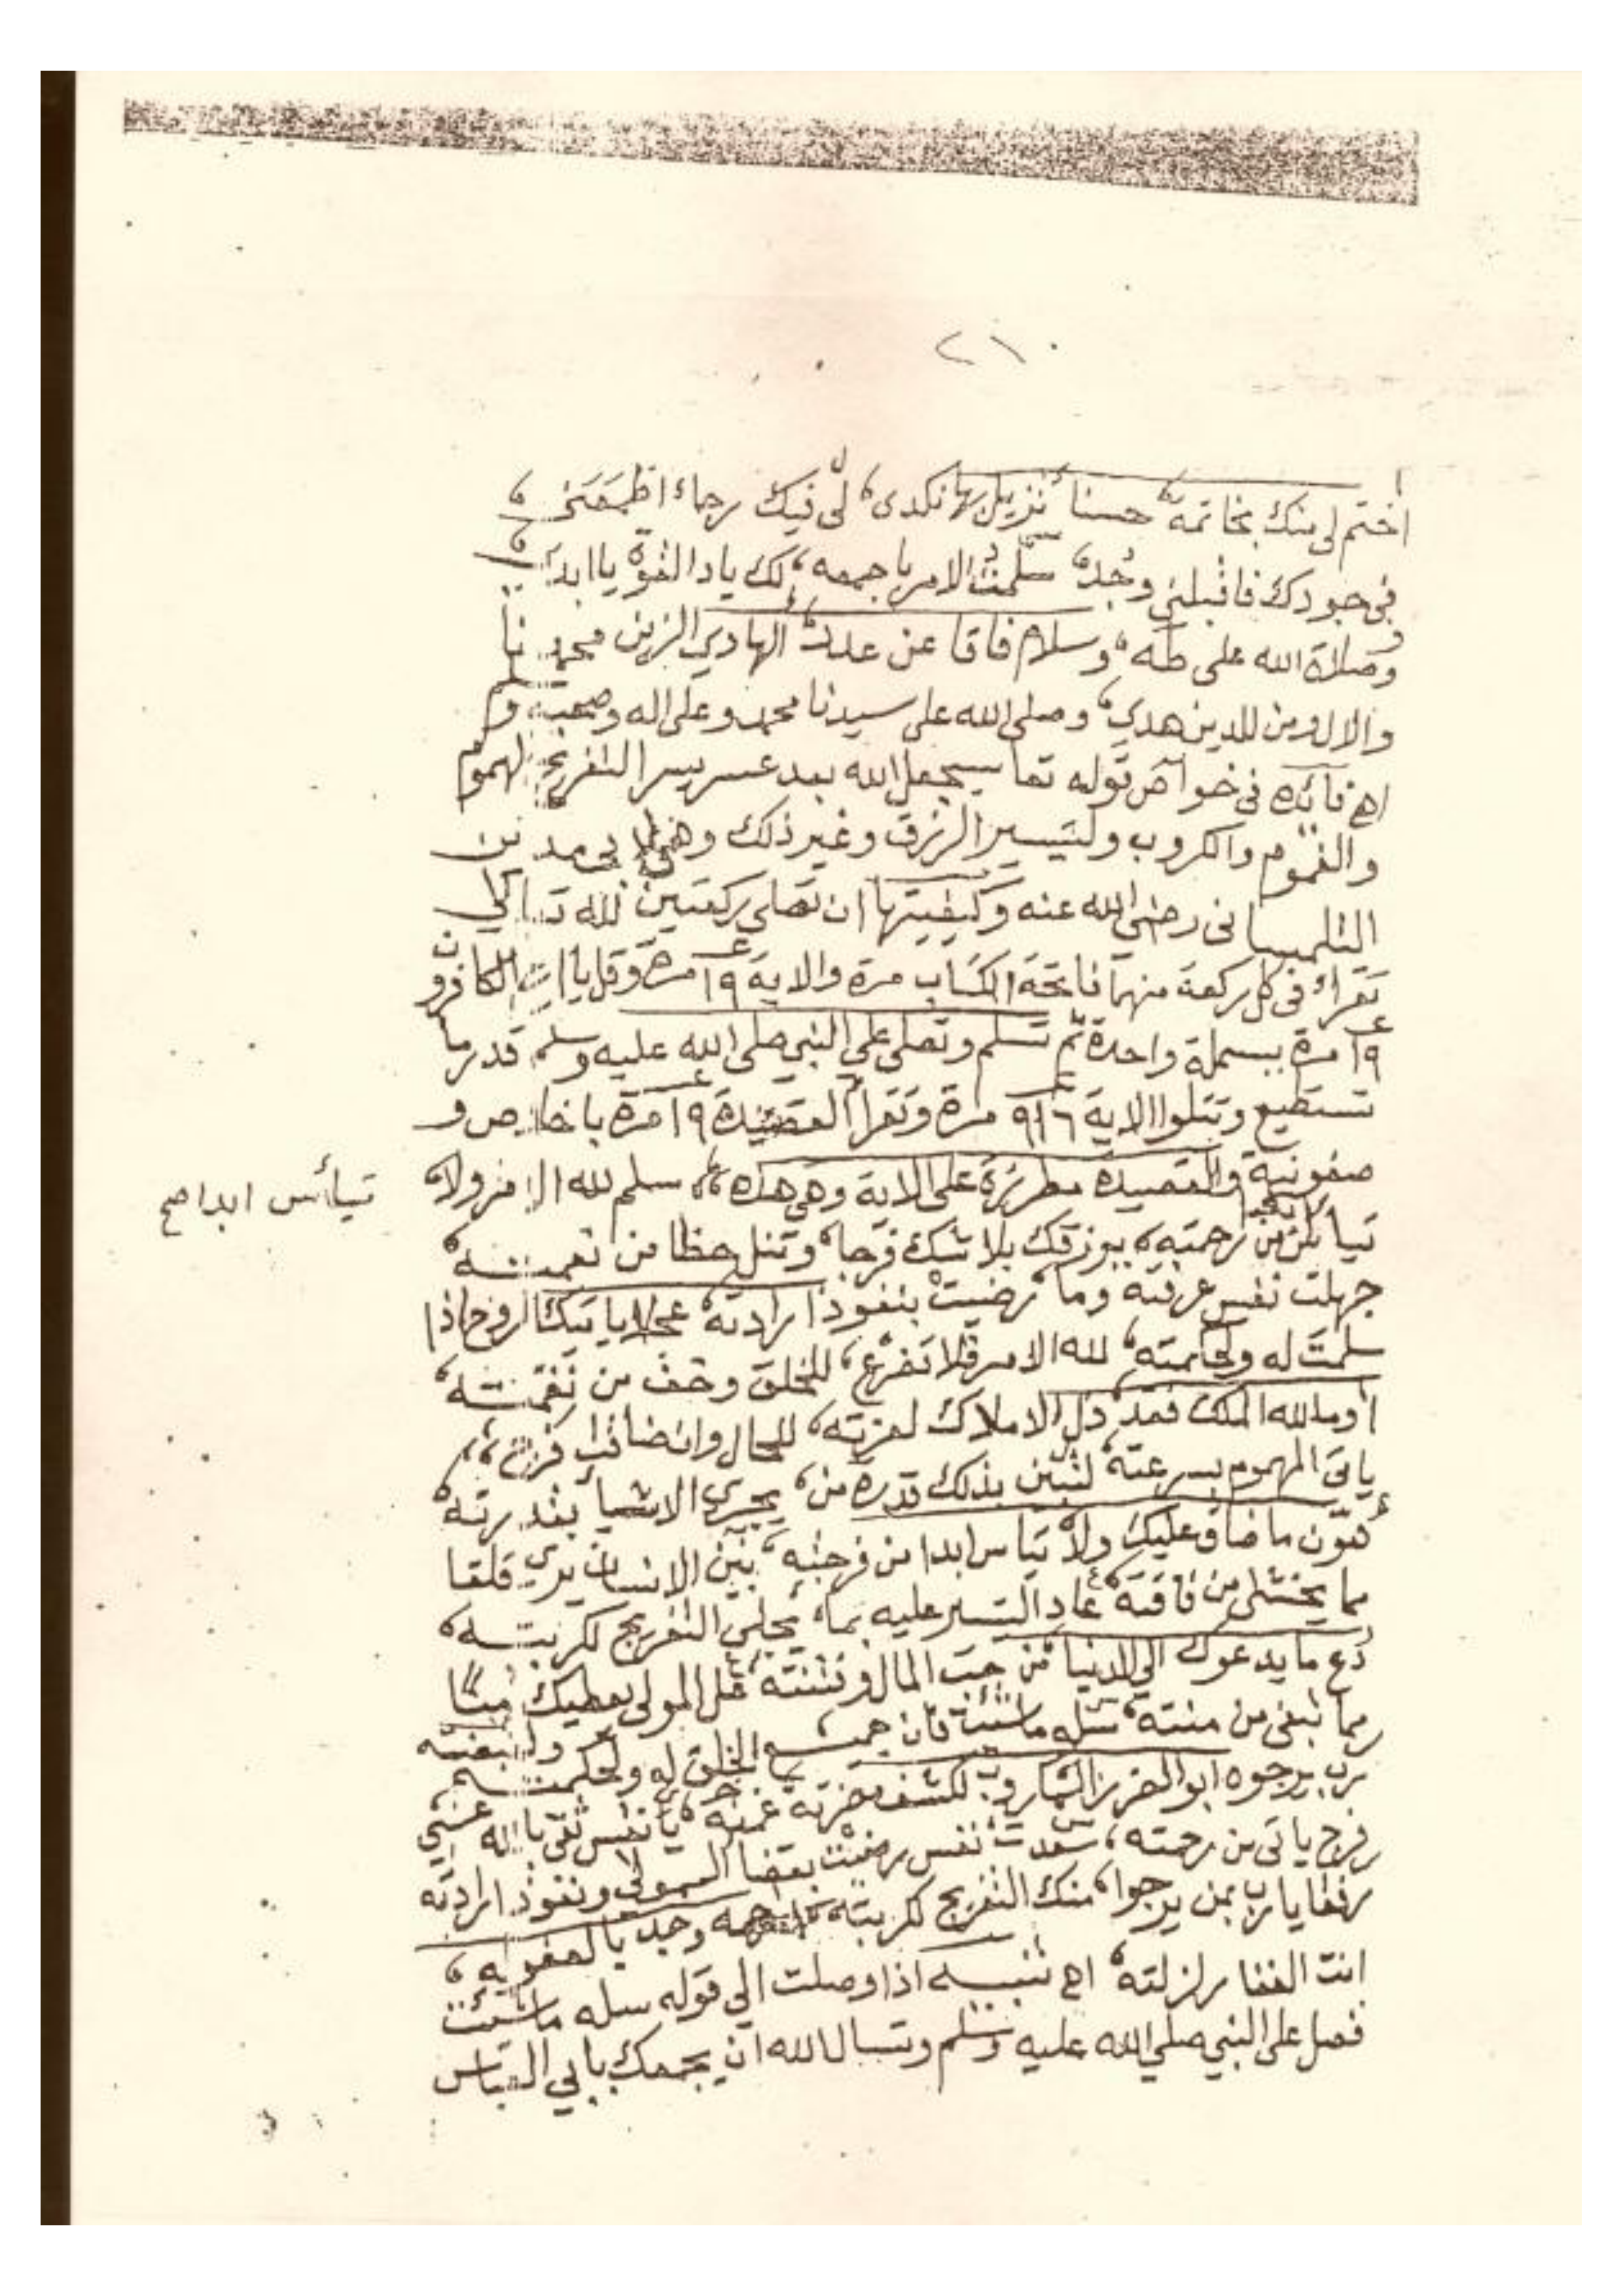 ٢١٠
اختم لى منك بخاتمة حسنا تزيل بها نكدى لى فيك رجاء اظمعنى
فى جودك فاقبلنى وجد سلمت الامر باجمعه لك ياذ القوة يا ابدا
وصلاة الله على طه وسلام فاقا عن عدد الهادي الزين محمد نا
والال ومن للدين هدي وصلى الله على سيدنا محمد وعلى اله وصحبه وسلم
اهـ فائده فى خواص قوله تعا سيجعل الله بعد عسر يسرا لتفريج الهموم
والغموم والكروب ولتيسير الرزق وغير ذلك وهى لابى مدين
التلمسانى رضى الله عنه وكيفيتها ان تصلى ركعتين لله تعالى
تقراء فى كل ركعة منهما فاتحة الكتاب مرة والاية ١٩ مرة وقل يا ايها الكافرون
١٩ مرة ببسملة واحدة ثم تسلم وتصلى على النبي صلى الله عليه وسلم قدر ما
تستطيع وتتلوا الاية ٩١٦ مرة وتقرأ القصيدة ١٩ مرة باخلاص و
والقصيدة مطرزة على الاية وهى هذه سلم لله الامر ولا
تيأس ابدا صح
من رحمته يرزقك بلا شك فرجا وتنل حظا من نعمته
جهلت نفس عرفته وما رضيت بنفوذ ارادته عجلا ياتيك الروح اذا
سلمت له ولحكمته لله الامر فلا تفزع للخلق وخف من نقمته
الله الملك فقد ذل الاملاك لعزته للحال وان ضاقت فرج
ياتى المهموم بسرعته بذلك قدرة من يجرى الاشيأ بقدرته
هون ما ضاق عليك ولا تياس ابدا من فرجته بين الانسان يرى قلقا
مما يخشى من فاقته عاد اليسر عليه بما يجلى التفريج لكربته
دع ما يدعوك الى الدنيا من حب المال وفتنته قل المولى يعطيك
مما تبغى من منته سله ما شئت فان جميع الخلق له ولحكمته
رب يرجوه لكشف غمته يا نفس ثقى بالله عسى
فرج ياتى من رحمته سعدت نفس رضيت بقضا المولى ونفوذ ارادته
رفقا يارب بمن يرجوا منك التفريج لكربته وجد بالعفو له
انت الغفار لزلته اهـ تنبيه اذا وصلت الى قوله سله ما شئت
فصل على النبي صلى الله عليه وسلم وتسال الله ان يجمعك بابى العباس